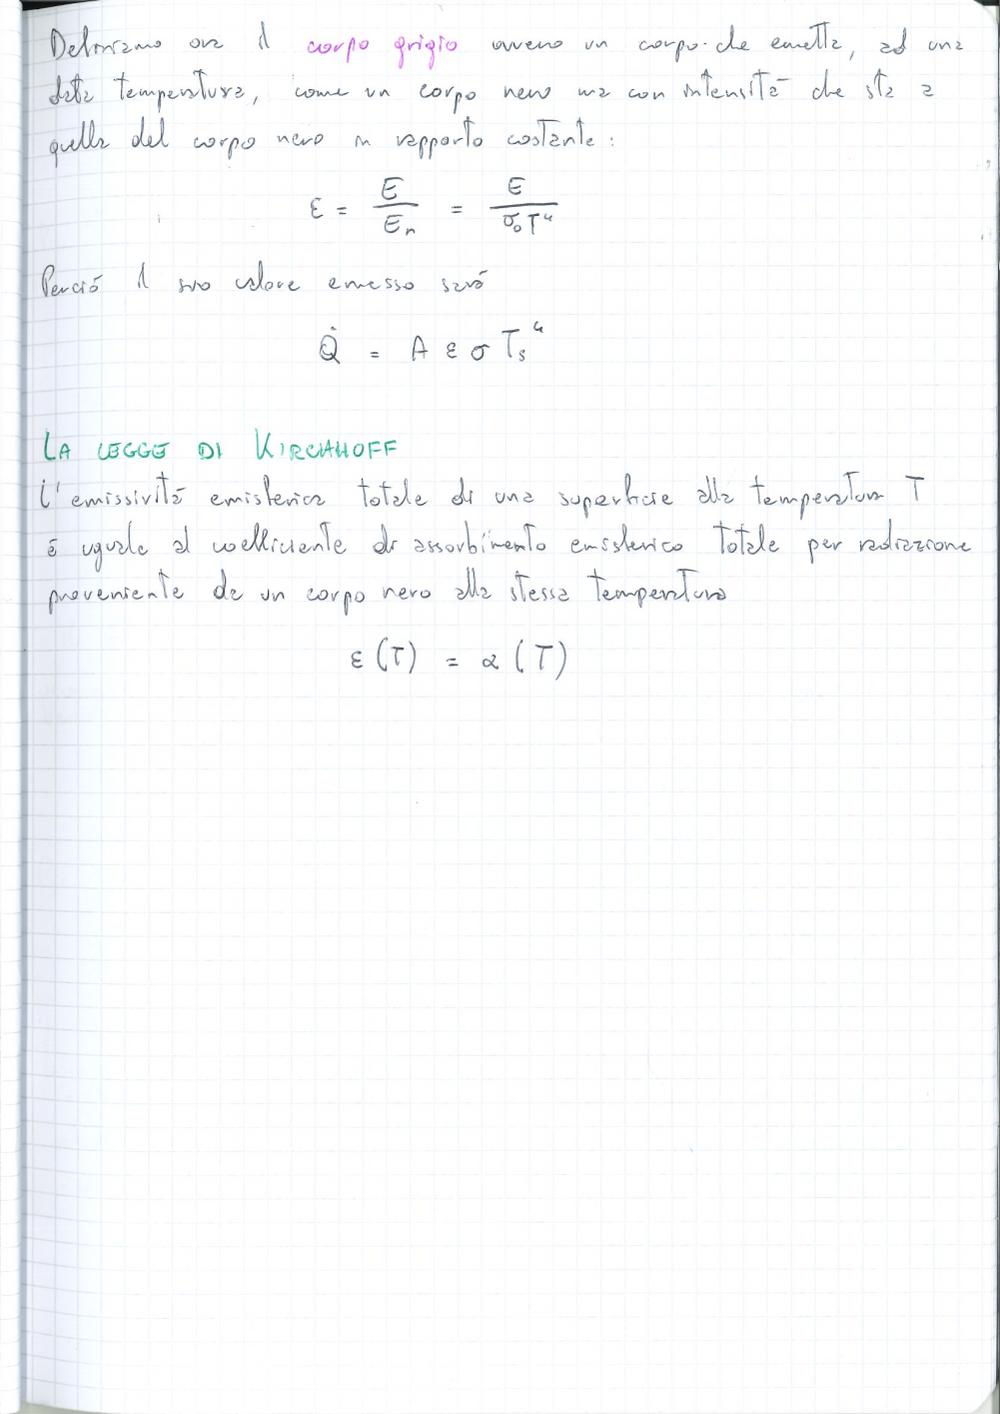 Definiamo ora il corpo grigio ovvero un corpo che emette, ad una
data temperatura, come un corpo nero ma con intensitā che sta a
quella del corpo nero in rapporto costante:
ε = E/En = E/σ₀T⁴
Perció il suo calore emesso sará
Q̇ = A ε σ Ts⁴
LA LEGGE DI KIRCHHOFF
L'emissivitá emisferica totale di una superficie alla temperatura T
é uguale al coefficiente di assorbimento emisferico totale per radiazione
proveniente da un corpo nero alla stessa temperatura
ε(T) = α(T)